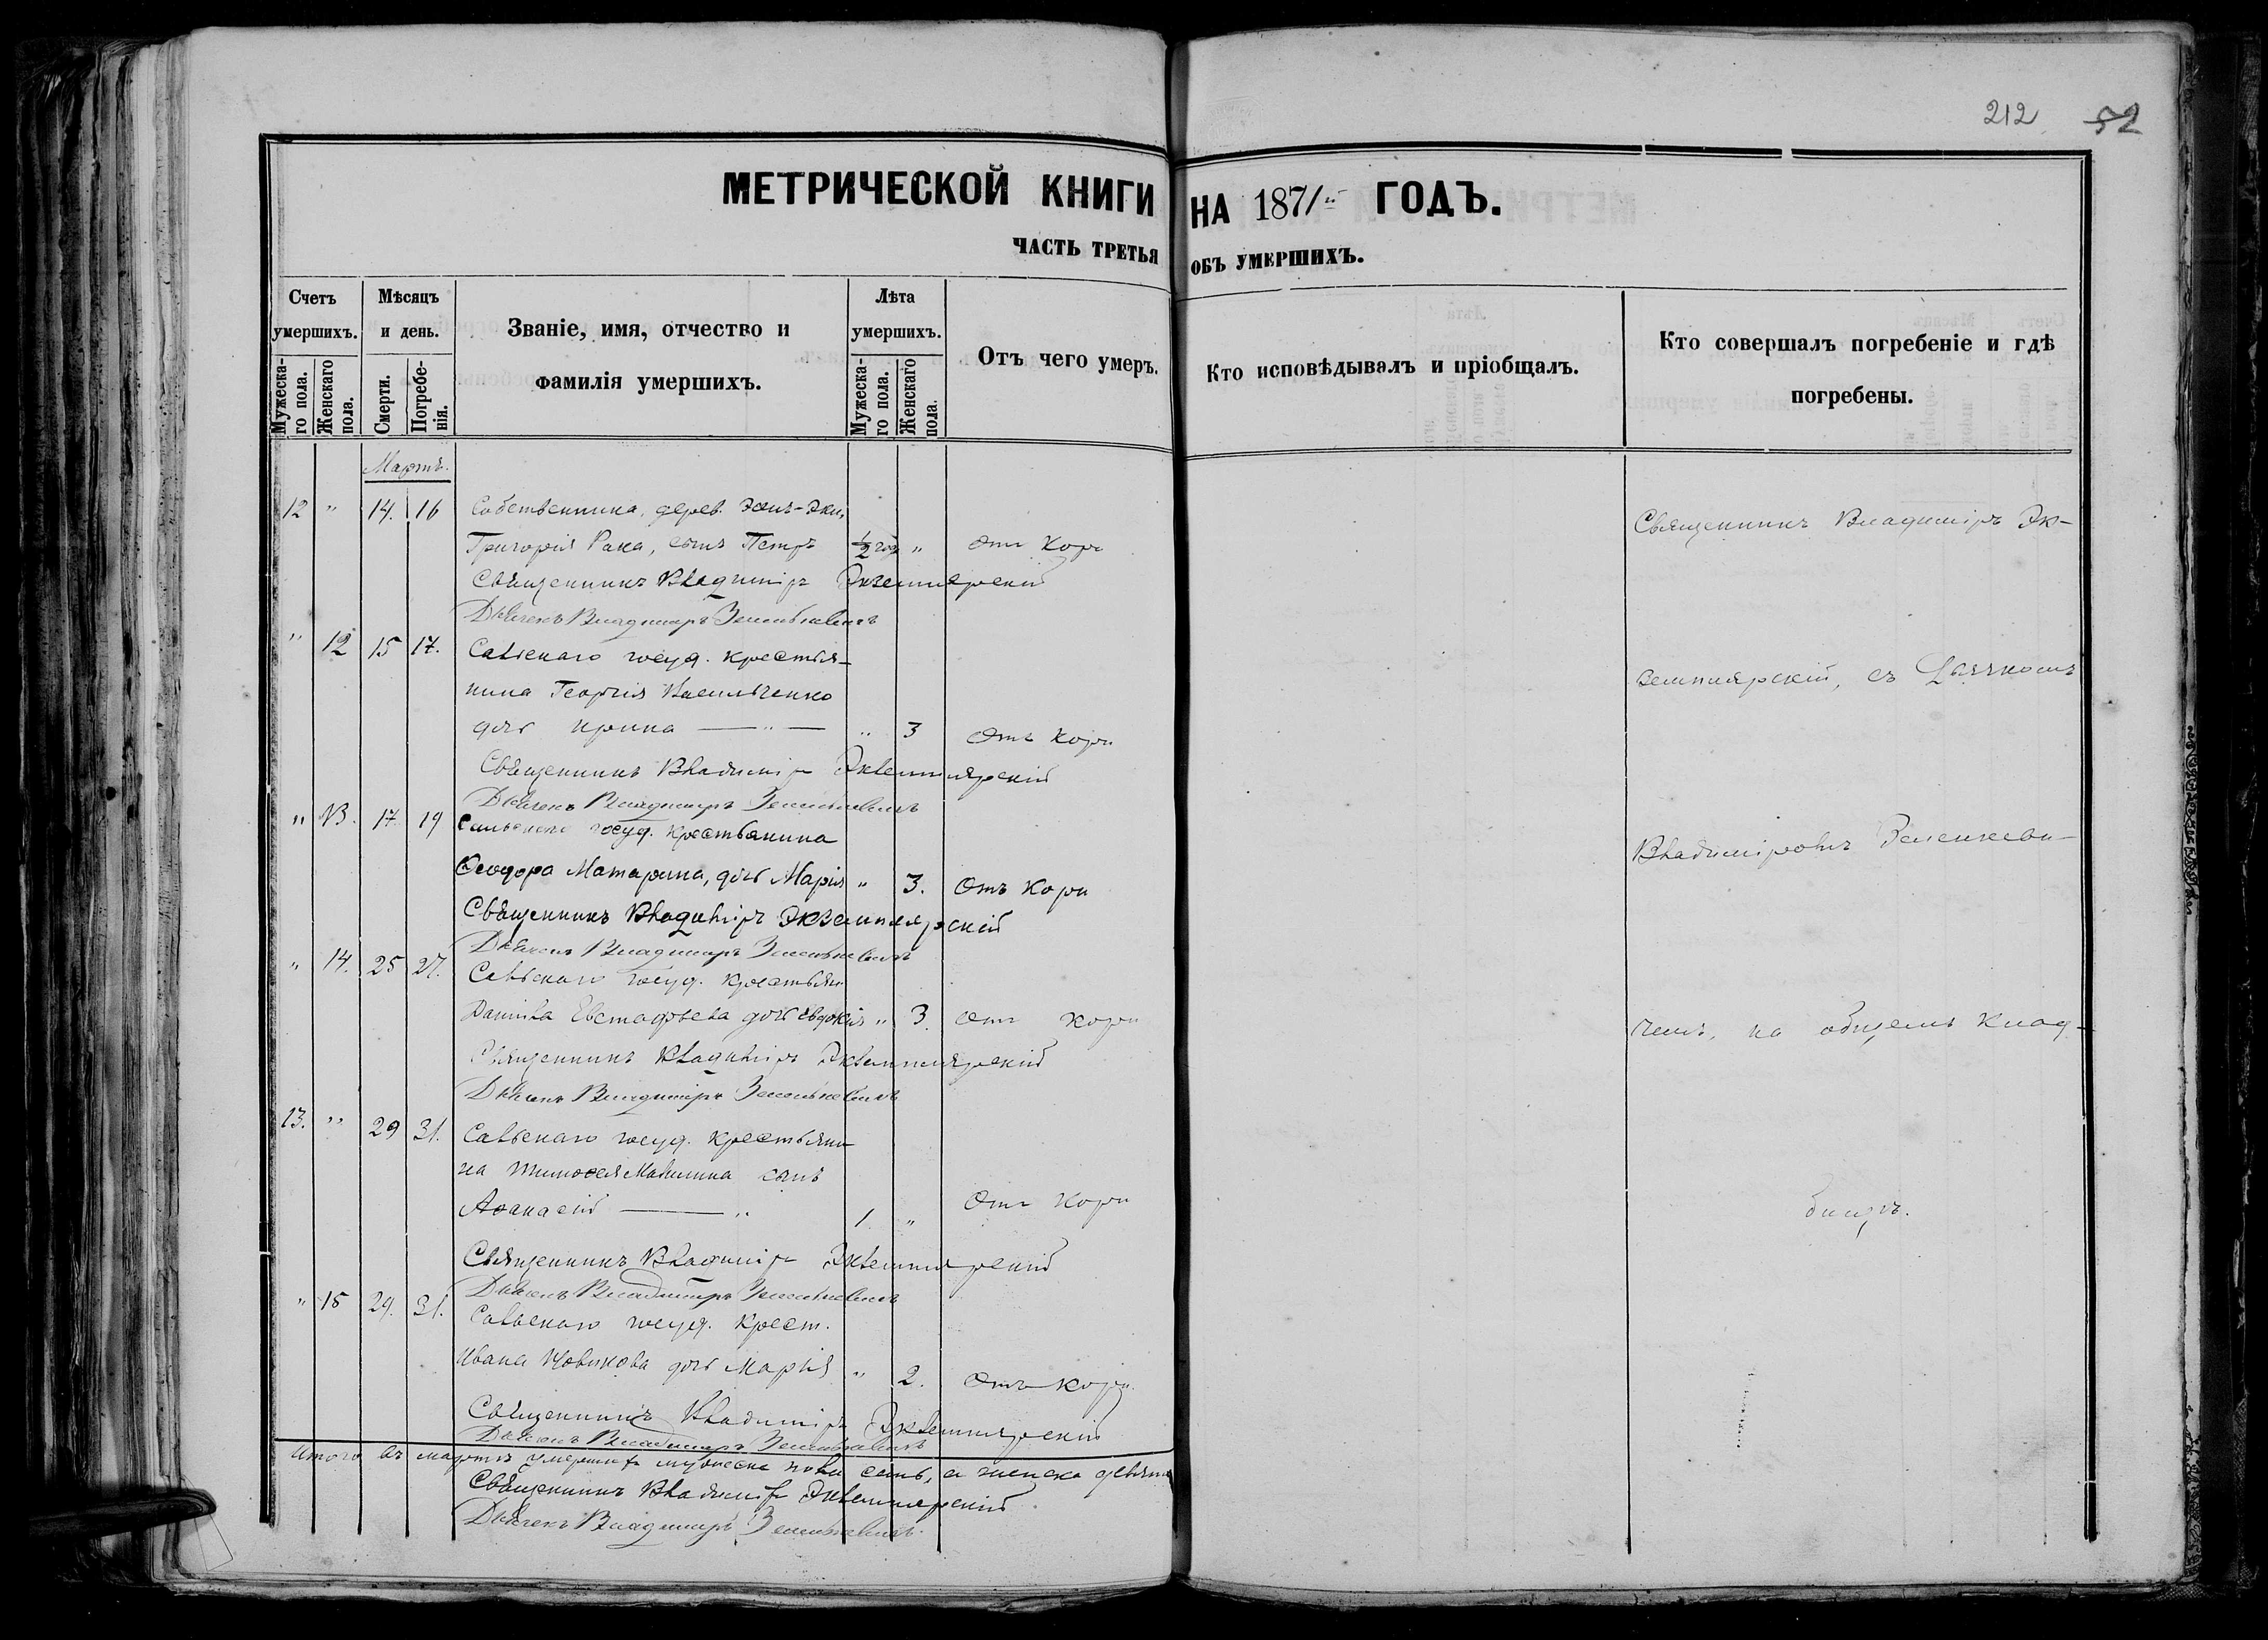 212 52
МЕТРИЧЕСКОЙ КНИГИ НА 1871 ГОДЪ.
ЧАСТЬ ТРЕТЬЯ ОБЪ УМЕРШИХЪ.
Счетъ умершихъ.
Мужеска-го пола.
Женскаго пола.
Мѣсяцъ и день.
Смерти.
Погребе-нія.
Званіе, имя, отчество и фамилія умершихъ.
Лѣта умершихъ.
Мужеска-го пола.
Женскаго пола.
Отъ чего умеръ.
Кто исповѣдывалъ и пріобщалъ.
Кто совершалъ погребеніе и гдѣ погребены.
Мартъ.
12 " 14. 16 Собственника, дерев.
Григорія Рака, сынъ Петръ ½ года " отъ кори
Священникъ Владиміръ Экземплярскій
Дьячекъ Владиміръ Зеленкевичъ
" 12 15 17. Сельскаго госуд. крестья-
нина Георгія Васильченко
дочь Ирина — " — " 3 Отъ кори
Священникъ Владиміръ Экземплярскій
Дьячекъ Владиміръ Зеленкевичъ
" 13. 17. 19 Сельскаго госуд. крестьянина
Ѳеодора Матарина, дочь Марія " 3. Отъ кори
Священникъ Владиміръ Экземплярскій
Дьячекъ Владиміръ Зеленкевичъ
" 14. 25 27. Сельскаго госуд. крестьян.
Даніила Евстафьева дочь Евдокія " 3. отъ кори
Священникъ Владиміръ Экземплярскій
Дьячекъ Владиміръ Зеленкевичъ
13. " 29 31. Сельскаго госуд. крестьяни-
на Тимоѳея сынъ
Аѳанасій — " 1 " Отъ кори
Священникъ Владиміръ Экземплярскій
Дьячекъ Владиміръ Зеленкевичъ
" 15 29. 31. Сельскаго госуд. крест.
Ивана Новикова дочь Марія " 2. Отъ кори.
Священникъ Владиміръ Экземплярскій
Дьячекъ Владиміръ Зеленкевичъ
Итого въ мартѣ умершихъ мужеска пола семь, а женска девять
Священникъ Владиміръ Экземплярскій
Дьячекъ Владиміръ Зеленкевичъ.
Священникъ Владиміръ Эк-
земплярскій, съ Дьячкомъ
Владиміромъ Зеленкеви-
чемъ, на общемъ клад-
бищѣ.